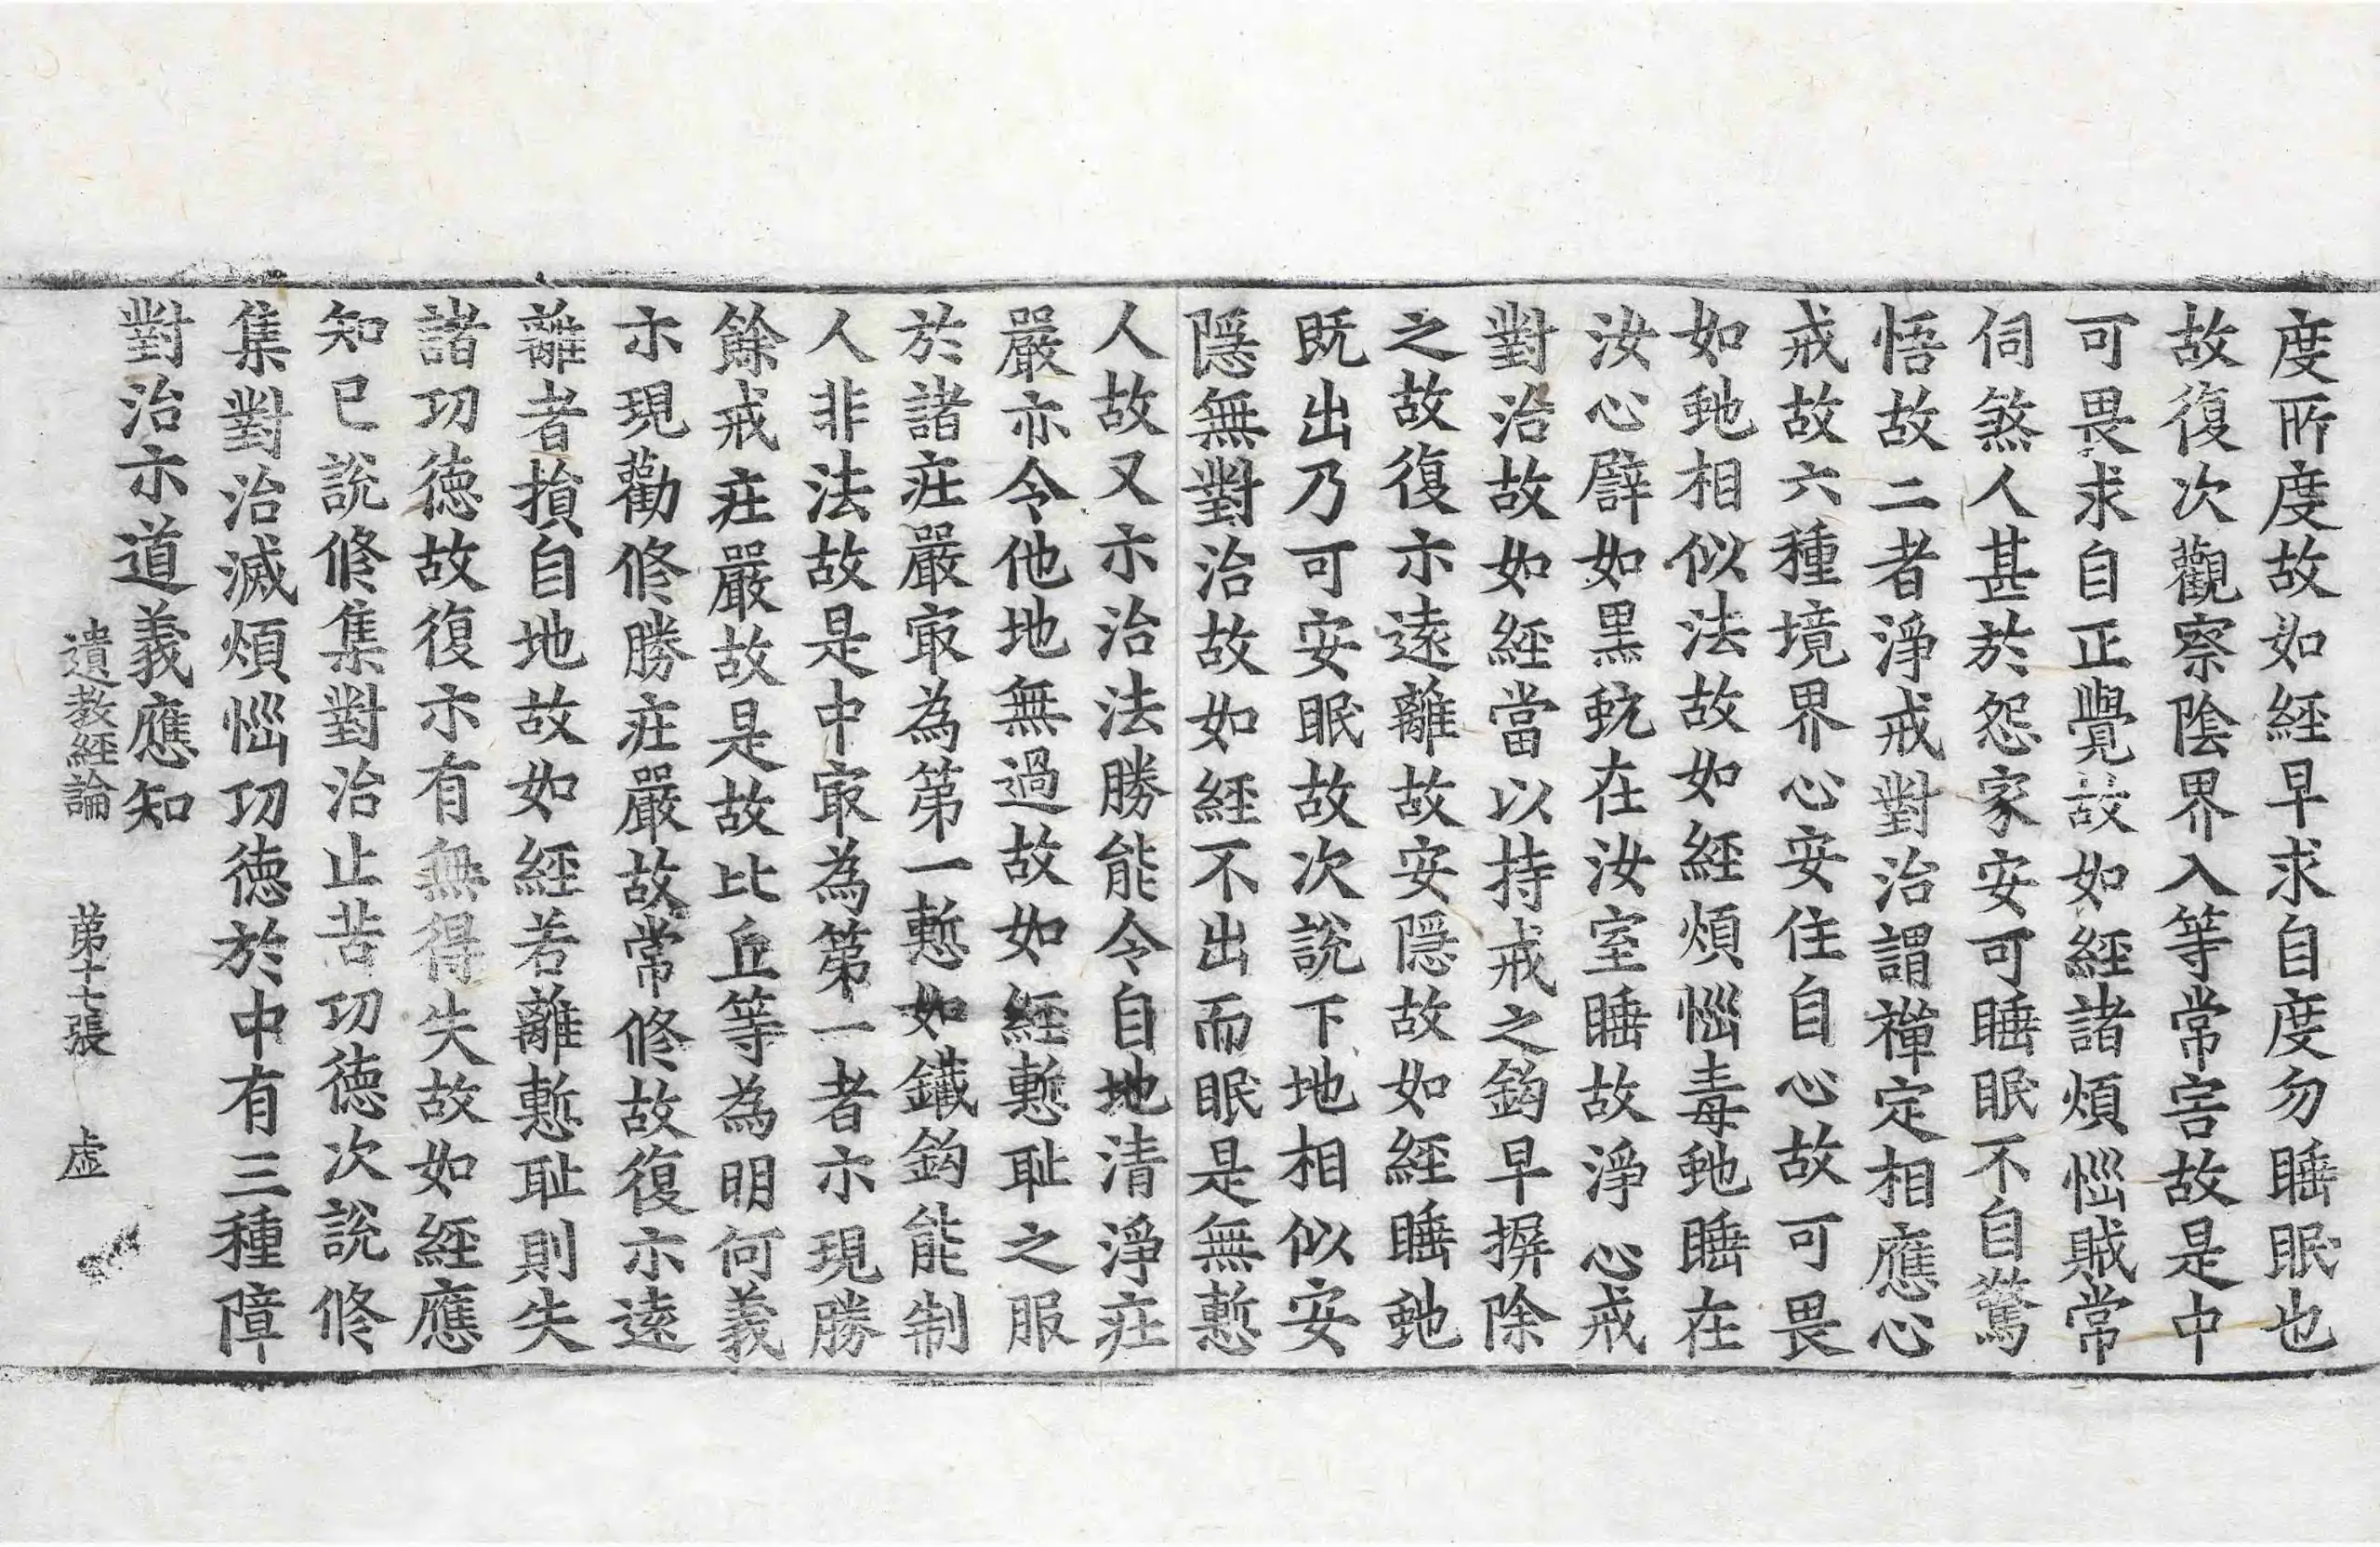 度所度故如經早求自度勿睡眠也
故復次觀察陰界入等常害故是中
可畏求自正覺故如經諸煩惱賊常
伺煞人甚於怨家安可睡眠不自驚
悟故二者淨戒對治謂禪定相應心
戒故六種境界心安住自心故可畏
如虵相似法故如經煩惱毒虵睡在
汝心譬如黑蚖在汝室睡故淨心戒
對治故如經當以持戒之鈎早摒除
之故復示遠離故安隱故如經睡虵
既出乃可安眠故次說下地相似安
隱無對治故如經不出而眠是無慙
人故又示治法勝能令自地清淨莊
嚴亦令他地無過故如經慙耻之服
於諸莊嚴冣為第一慙如鐵鈎能制
人非法故是中冣為第一者示現勝
餘戒莊嚴故是故比丘等為明何義
示現勸修勝莊嚴故常修故復示遠
離者損自地故如經若離慙耻則失
諸功德故復示有無得失故如經應
知已說修集對治止苦功德次說修
集對治滅煩惱功德於中有三種障
對治示道義應知
遺教經論 第十七張 虛